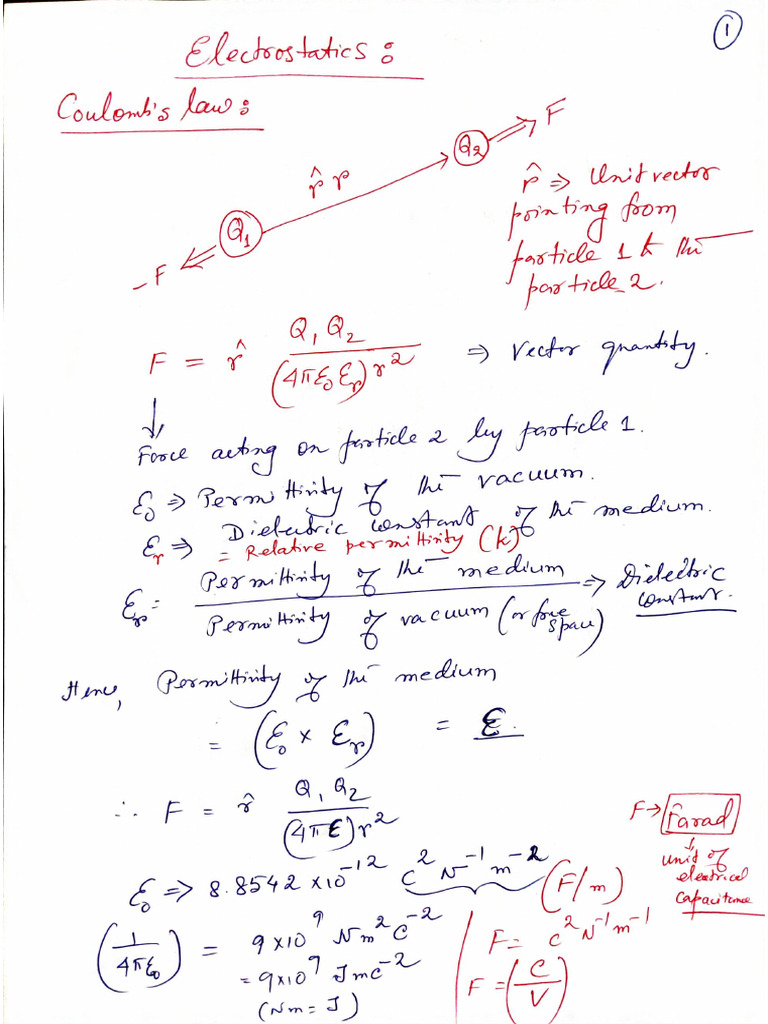 1
Electrostatics:
Coulomb's law:
F
Q₂
r̂ r
Q₁
-F
r̂ ⇒ Unit vector
pointing from
particle 1 to the
particle 2.
F = r̂ Q₁Q₂ / (4πε₀εᵣ)r² ⇒ Vector quantity.
↓
Force acting on particle 2 by particle 1.
ε₀ ⇒ Permittivity of the vacuum.
εᵣ ⇒ Dielectric constant of the medium.
= Relative permittivity (k)
εᵣ = Permittivity of the medium / Permittivity of vacuum (or free space) ⇒ Dielectric constant.
Hence, Permittivity of the medium
= (ε₀ × εᵣ) = ε.
∴ F = r̂ Q₁Q₂ / (4πε)r²
F → Farad
↓
unit of
electrical
capacitance
ε₀ ⇒ 8.8542 × 10⁻¹² C² N⁻¹ m⁻² (F/m)
(1/4πε₀) = 9×10⁹ Nm² C⁻²
= 9×10⁹ J m C⁻²
(Nm = J)
F = C² N⁻¹ m⁻¹
F = (C/V)